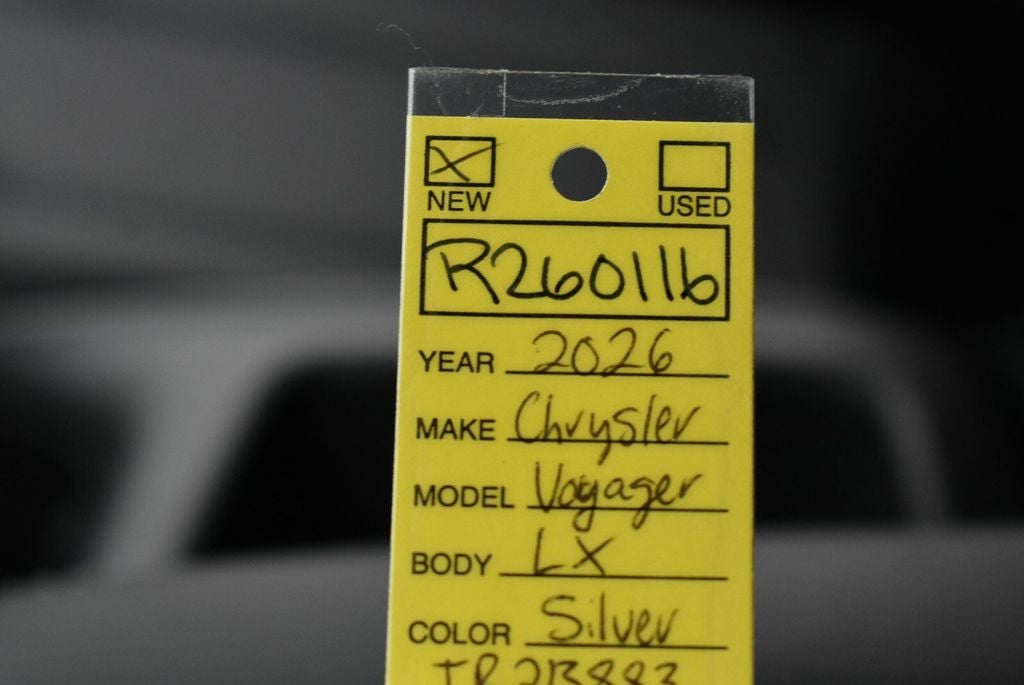 X
NEW USED
R260116
YEAR 2026
MAKE Chrysler
MODEL Voyager
BODY LX
COLOR Silver